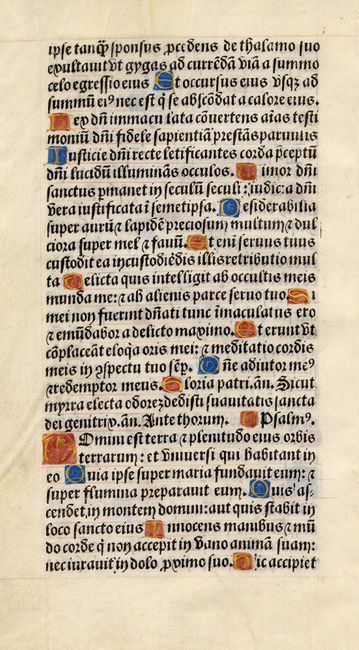 ipse tanq̃ sponsus ꝓcedens de thalamo suo
exultauit vt gygas ad currẽdã viã a summo
celo egressio eius Et occursus eius vsqꝫ ad
summũ eiꝰ nec est q̃ se abscõdat a calore eius.
Lex dñi immaculata cõuertens aĩas testi
moniũ dñi fidele sapientiã prestãs paruulis
Iusticie dñi recte letificantes corda p̃ceptũ
dñi lucidũ illuminãs occulos. Timor dñi
sanctus ꝑmanet in seculũ seculi : iudic: a dñi
vera iustificata ĩ semetipsa. Desiderabilia
super aurũ ⁊ lapidẽ preciosum multum ⁊ dul
ciora super mel ⁊ fauũ. Et eñi seruus tuus
custodit ea in custodiẽdis illis retributio mul
ta Delicta quis intelligit ab occultis meis
munda me: ⁊ ab alienis parce seruo tuo Si
mei non fuerint dñati tunc ĩmaculatus ero
⁊ emũdabor a delicto maximo. Et erunt vt
cõplaceãt eloqa oris mei: ⁊ meditatio cordis
meis in ↄspectu tuo sẽꝑ. Dñe adiutor meꝰ
⁊ redemptor meus. Gloria patri. añ. Sicut
myrra electa odorẽ dedisti suauitatis sancta
dei genitrix. añ. Ante thorum. Psalmꝰ.
Domini est terra ⁊ plenitudo eius orbis
terrarum : et vniuersi qui habitant in
eo Quia ipse super maria fundauit eum: ⁊
super flumina preparauit eum. Quis as-
cendet in montem domini: aut quis stabit in
loco sancto eius Innocens manibus ⁊ mũ
do corde q̃ non accepit in vano animã suam:
nec iurauit in dolo ꝓximo suo. Hic accipiet